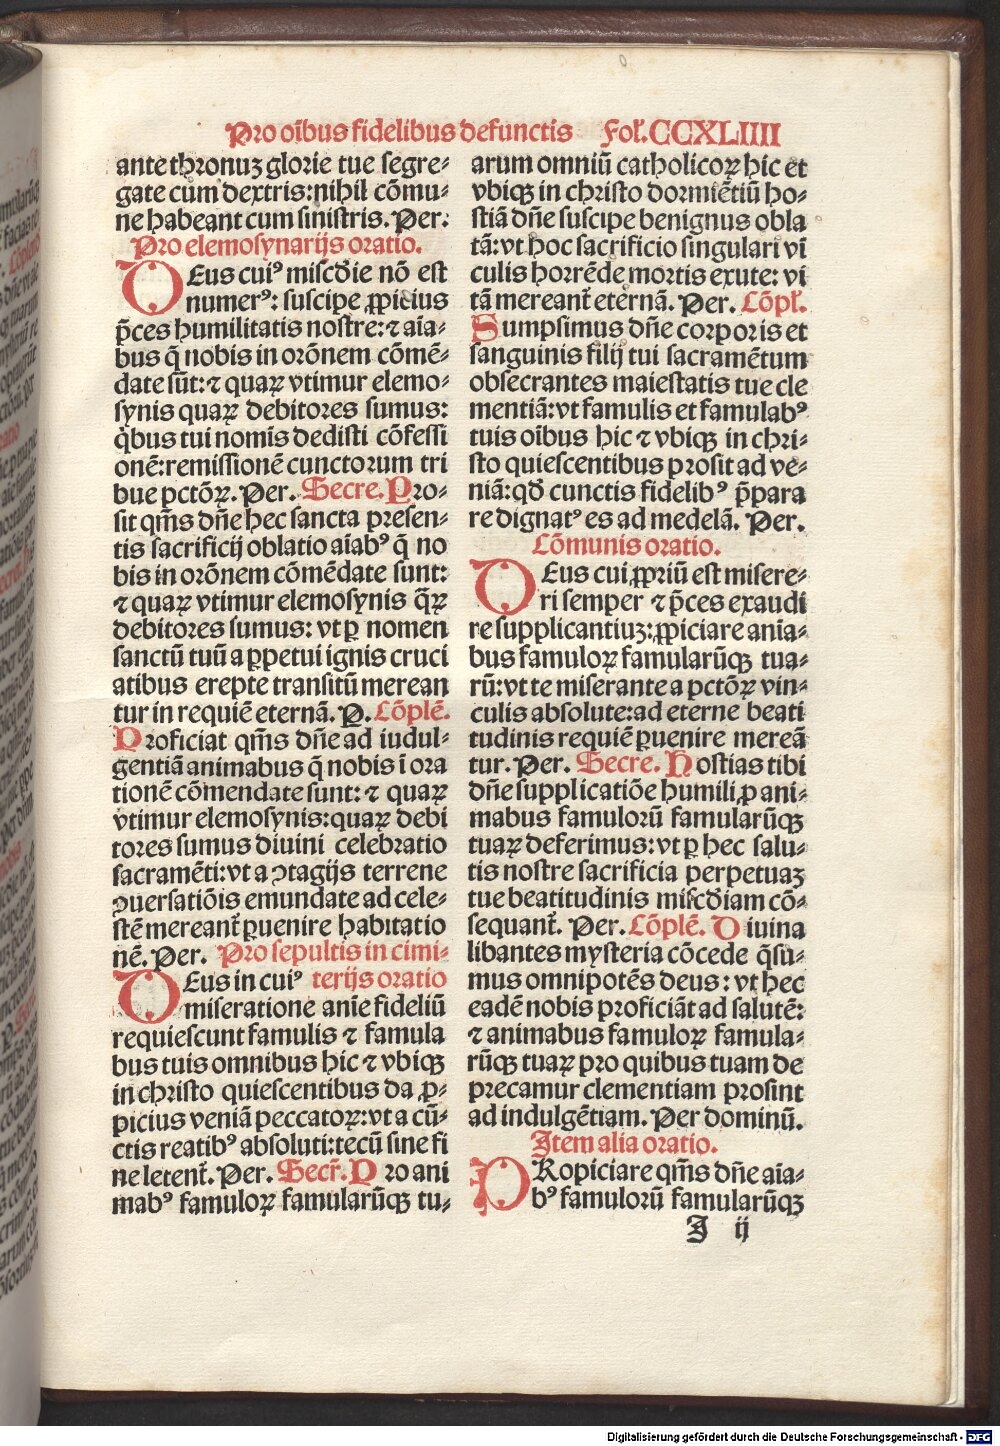 Pro oĩbus fidelibus defunctis Fol̃. CCXLIIII
ante thronuʒ glorie tue segre⸗
gate cum dextris: nihil cõmu⸗
ne habeant cum sinistris. Per.
Pro elemosynarijs oratio.
DEus cuiꝰ misc̃die nõ est
numerꝰ: suscipe ꝓpicius
p̃ces humilitatis nostre: ⁊ aĩa⸗
bus q̃ nobis in orõnem cõmẽ⸗
date sũt: ⁊ quaꝝ vtimur elemo⸗
synis quaꝝ debitores sumus:
q̇bus tui nomĩs dedisti cõfessi
onẽ: remissionẽ cunctorum tri
bue pctõꝝ. Per. Secre. Pro⸗
sit qm̃s dñe hec sancta presen⸗
tis sacrificij oblatio aĩabꝰ q̃ no
bis in orõnem cõmẽdate sunt:
⁊ quaꝝ vtimur elemosynis q̃ꝝ
debitores sumus: vt ꝑ nomen
sanctũ tuũ a ꝑpetui ignis cruci
atibus erepte transitũ merean
tur in requiẽ eternã. P. Cõplẽ.
Proficiat qm̃s dñe ad iudul⸗
gentiã animabus q̃ nobis ĩ ora
tionẽ cõmendate sunt: ⁊ quaꝝ
vtimur elemosynis: quaꝝ debi
tores sumus diuini celebratio
sacramẽti: vt a ꝯtagijs terrene
ꝯuersatiõis emundate ad cele⸗
stẽ mereant̃ ꝑuenire habitatio
nẽ. Per. Pro sepultis in cimi⸗
DEus in cuiꝰ terijs oratio
miseratione anĩe fideliũ
requiescunt famulis ⁊ famula
bus tuis omnibus hic ⁊ vbiqꝫ
in christo quiescentibus da ꝓ⸗
picius veniã peccatoꝝ: vt a cũ⸗
ctis reatibꝰ absoluti: tecũ sine fi
ne letent̃. Per. Secr̃. Pro ani
mabꝰ famuloꝝ famularũqꝫ tu⸗
arum omniũ catholicoꝝ hic et
vbiqꝫ in christo dormiẽtiũ ho⸗
stiã dñe suscipe benignus obla
tã: vt hoc sacrificio singulari vĩ
culis horrẽde mortis exute: vi
tã mereant̃ eternã. Per. Cõpl̃.
Sumpsimus dñe corporis et
sanguinis filij tui sacramẽtum
obsecrantes maiestatis tue cle
mentiã: vt famulis et famulabꝰ
tuis oĩbus hic ⁊ vbiqꝫ in chri⸗
sto quiescentibus prosit ad ve⸗
niã: qđ cunctis fidelibꝰ p̃para
re dignatꝰ es ad medelã. Per.
Cõmunis oratio.
DEus cui ꝓpriũ est misere⸗
ri semper ⁊ p̃ces exaudi
re supplicantiuʒ: ꝓpiciare anĩa⸗
bus famuloꝝ famularũqꝫ tua⸗
rũ: vt te miserante a pctõꝝ vin⸗
culis absolute: ad eterne beati
tudinis requiẽ ꝑuenire mereã
tur. Per. Secre. Hostias tibi
dñe supplicatiõe humili ꝓ ani⸗
mabus famulorũ famularũqꝫ
tuaꝝ deferimus: vt ꝑ hec salu⸗
tis nostre sacrificia perpetuaʒ
tue beatitudinis misc̃diam cõ⸗
sequant̃. Per. Cõplẽ. Diuina
libantes mysteria cõcede q̃su⸗
mus omnipotẽs deus: vt hec
eadẽ nobis proficiãt ad salutẽ:
⁊ animabus famuloꝝ famula⸗
rũqꝫ tuaꝝ pro quibus tuam de
precamur clementiam prosint
ad indulgẽtiam. Per dominũ.
Item alia oratio.
PRopiciare qm̃s dñe aĩa⸗
bꝰ famulorũ famularũqꝫ
I ij
Digitalisierung gefördert durch die Deutsche Forschungsgemeinschaft - DFG